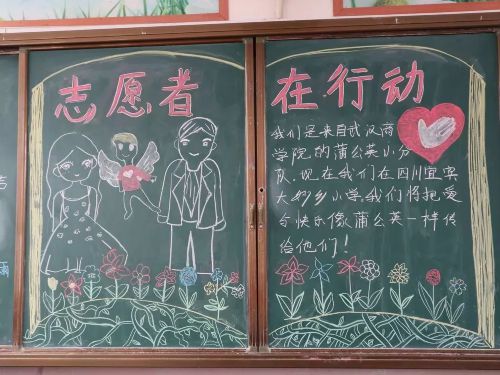 志愿者
在行动
我们是来自武汉商
学院的蒲公英小分
队,现在我们在四川宜宾
大乡小学我们将把爱
与快乐像蒲公英一样传
给他们!